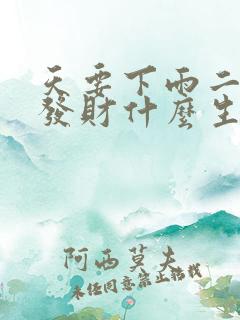 天要下雨二
發財什麼生
阿西莫夫
未經同意禁止轉載